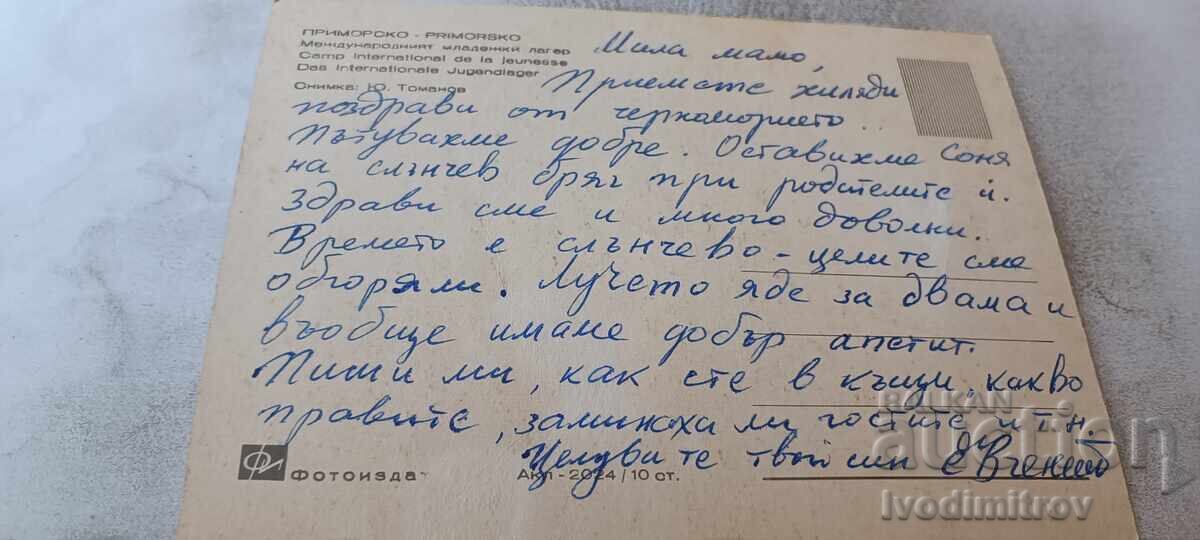 ПРИМОРСКО - PRIMORSKO
Международният младежки лагер
Camp International de la jeunesse
Das Internationale Jugendlager
Снимка: Ю. Томанов
Мила мамо,
Приемете хиляди
поздрави от черноморието.
Пътувахме добре. Оставихме Соня
на слънчев бряг при родителите ѝ.
Здрави сме и много доволни.
Времето е слънчево - целите сме
обгоряли. Лучето яде за двама и
въобще имаме добър апетит.
Пиши ми, как сте в къщи, какво
правите, заминаха ли гостите и т.н.
Целувки те твой син Евгений
Фотоиздат
Акл-2024/10 ст.
BALKAN
auction
Ivodimitrov